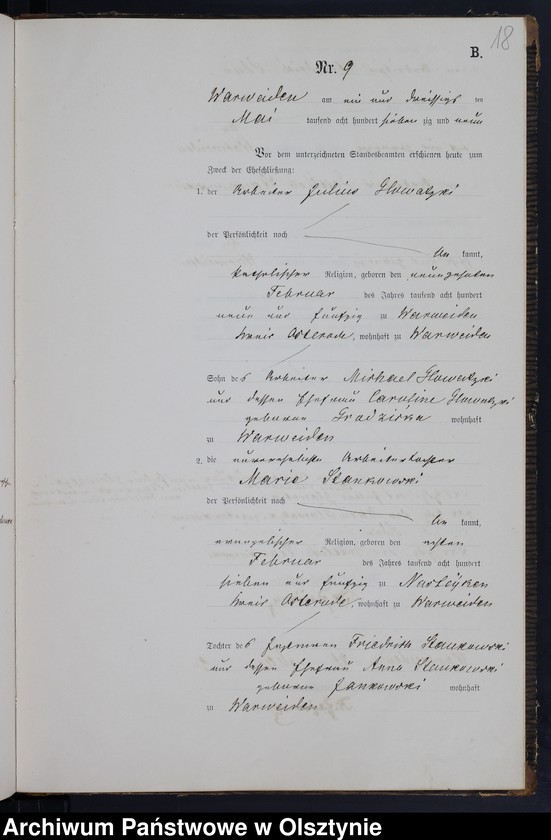 18
B.
Nr. 9
Warweiden am ein und dreissigs ten
Mai tausend acht hundert sieben zig und neun
Vor dem unterzeichneten Standesbeamten erschienen heute zum
Zweck der Eheschließung:
1. der Arbeiter Julius Glowatzki
der Persönlichkeit nach
be kannt,
katholischer Religion, geboren den neunzehnten
Februar des Jahres tausend acht hundert
neun und fünfzig zu Warweiden
Kreis Osterode, wohnhaft zu Warweiden
Sohn des Arbeiter Michael Glowatzki
und dessen Ehefrau Caroline Glowatzki
geborene Gradzicka wohnhaft
zu Warweiden
2. die unverehelichte Arbeitertochter
Marie Stankowski
der Persönlichkeit nach
be kannt,
evangelischer Religion, geboren den ersten
Februar des Jahres tausend acht hundert
sieben und fünfzig zu
Kreis Osterode, wohnhaft zu Warweiden
Tochter des Friedrich Stankowski
und dessen Ehefrau Anna Stankowski
geborene Jankowski wohnhaft
zu Warweiden
Archiwum Państwowe w Olsztynie